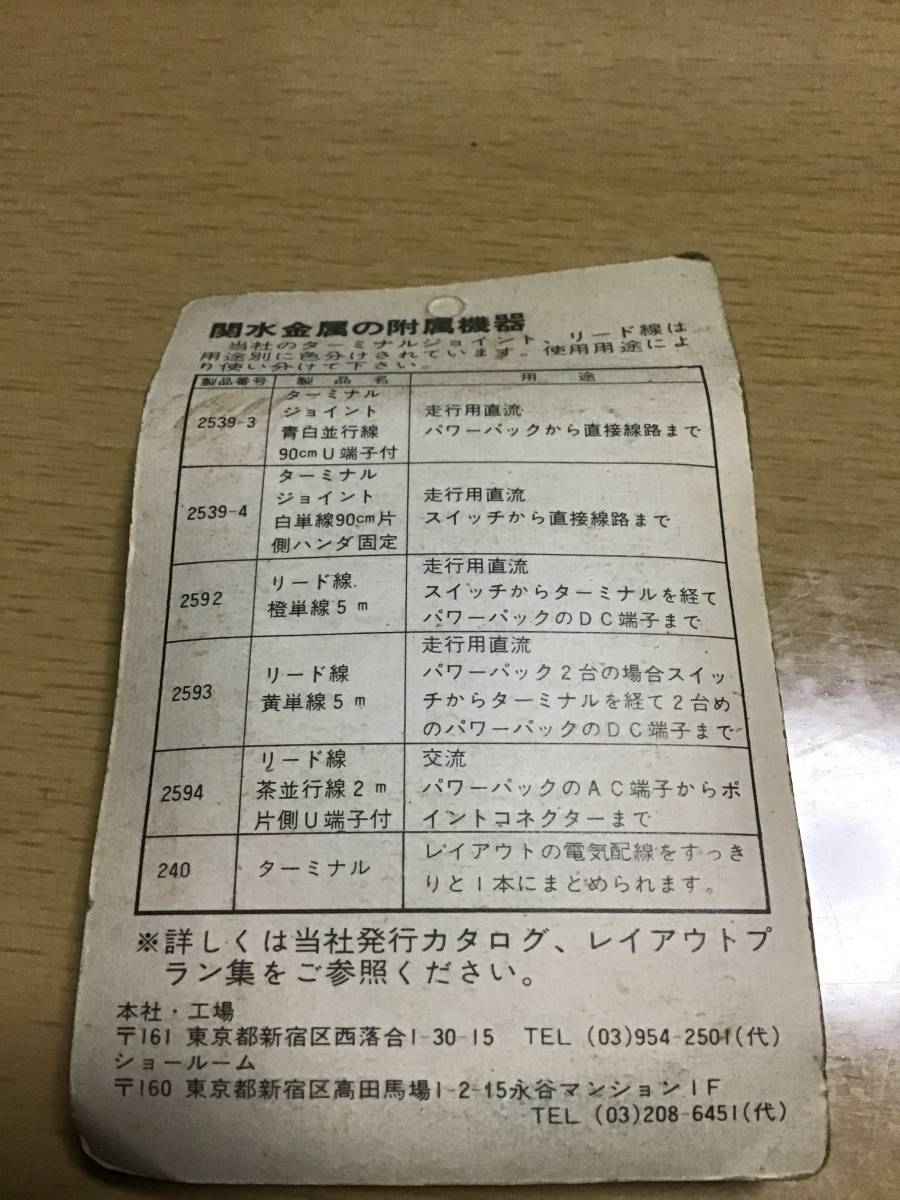 関水金属の附属機器
当社のターミナルジョイント、リード線は
用途別に色分けされています。使用用途によ
り使い分けて下さい。
製品番号 製品名 用途
2539-3
ターミナル
ジョイント
青白並行線
90cmU端子付
走行用直流
パワーパックから直接線路まで
2539-4
ターミナル
ジョイント
白単線90cm片
側ハンダ固定
走行用直流
スイッチから直接線路まで
2592
リード線
橙単線5m
走行用直流
スイッチからターミナルを経て
パワーパックのDC端子まで
2593
リード線
黄単線5m
走行用直流
パワーパック2台の場合スイッ
チからターミナルを経て2台め
のパワーパックのDC端子まで
2594
リード線
茶並行線2m
片側U端子付
交流
パワーパックのAC端子からポ
イントコネクターまで
240
ターミナル
レイアウトの電気配線をすっき
りと1本にまとめられます。
※詳しくは当社発行カタログ、レイアウトプ
ラン集をご参照ください。
本社・工場
〒161 東京都新宿区西落合1-30-15 TEL (03)954-2501(代)
ショールーム
〒160 東京都新宿区高田馬場1-2-15永谷マンション1F
TEL (03)208-6451(代)